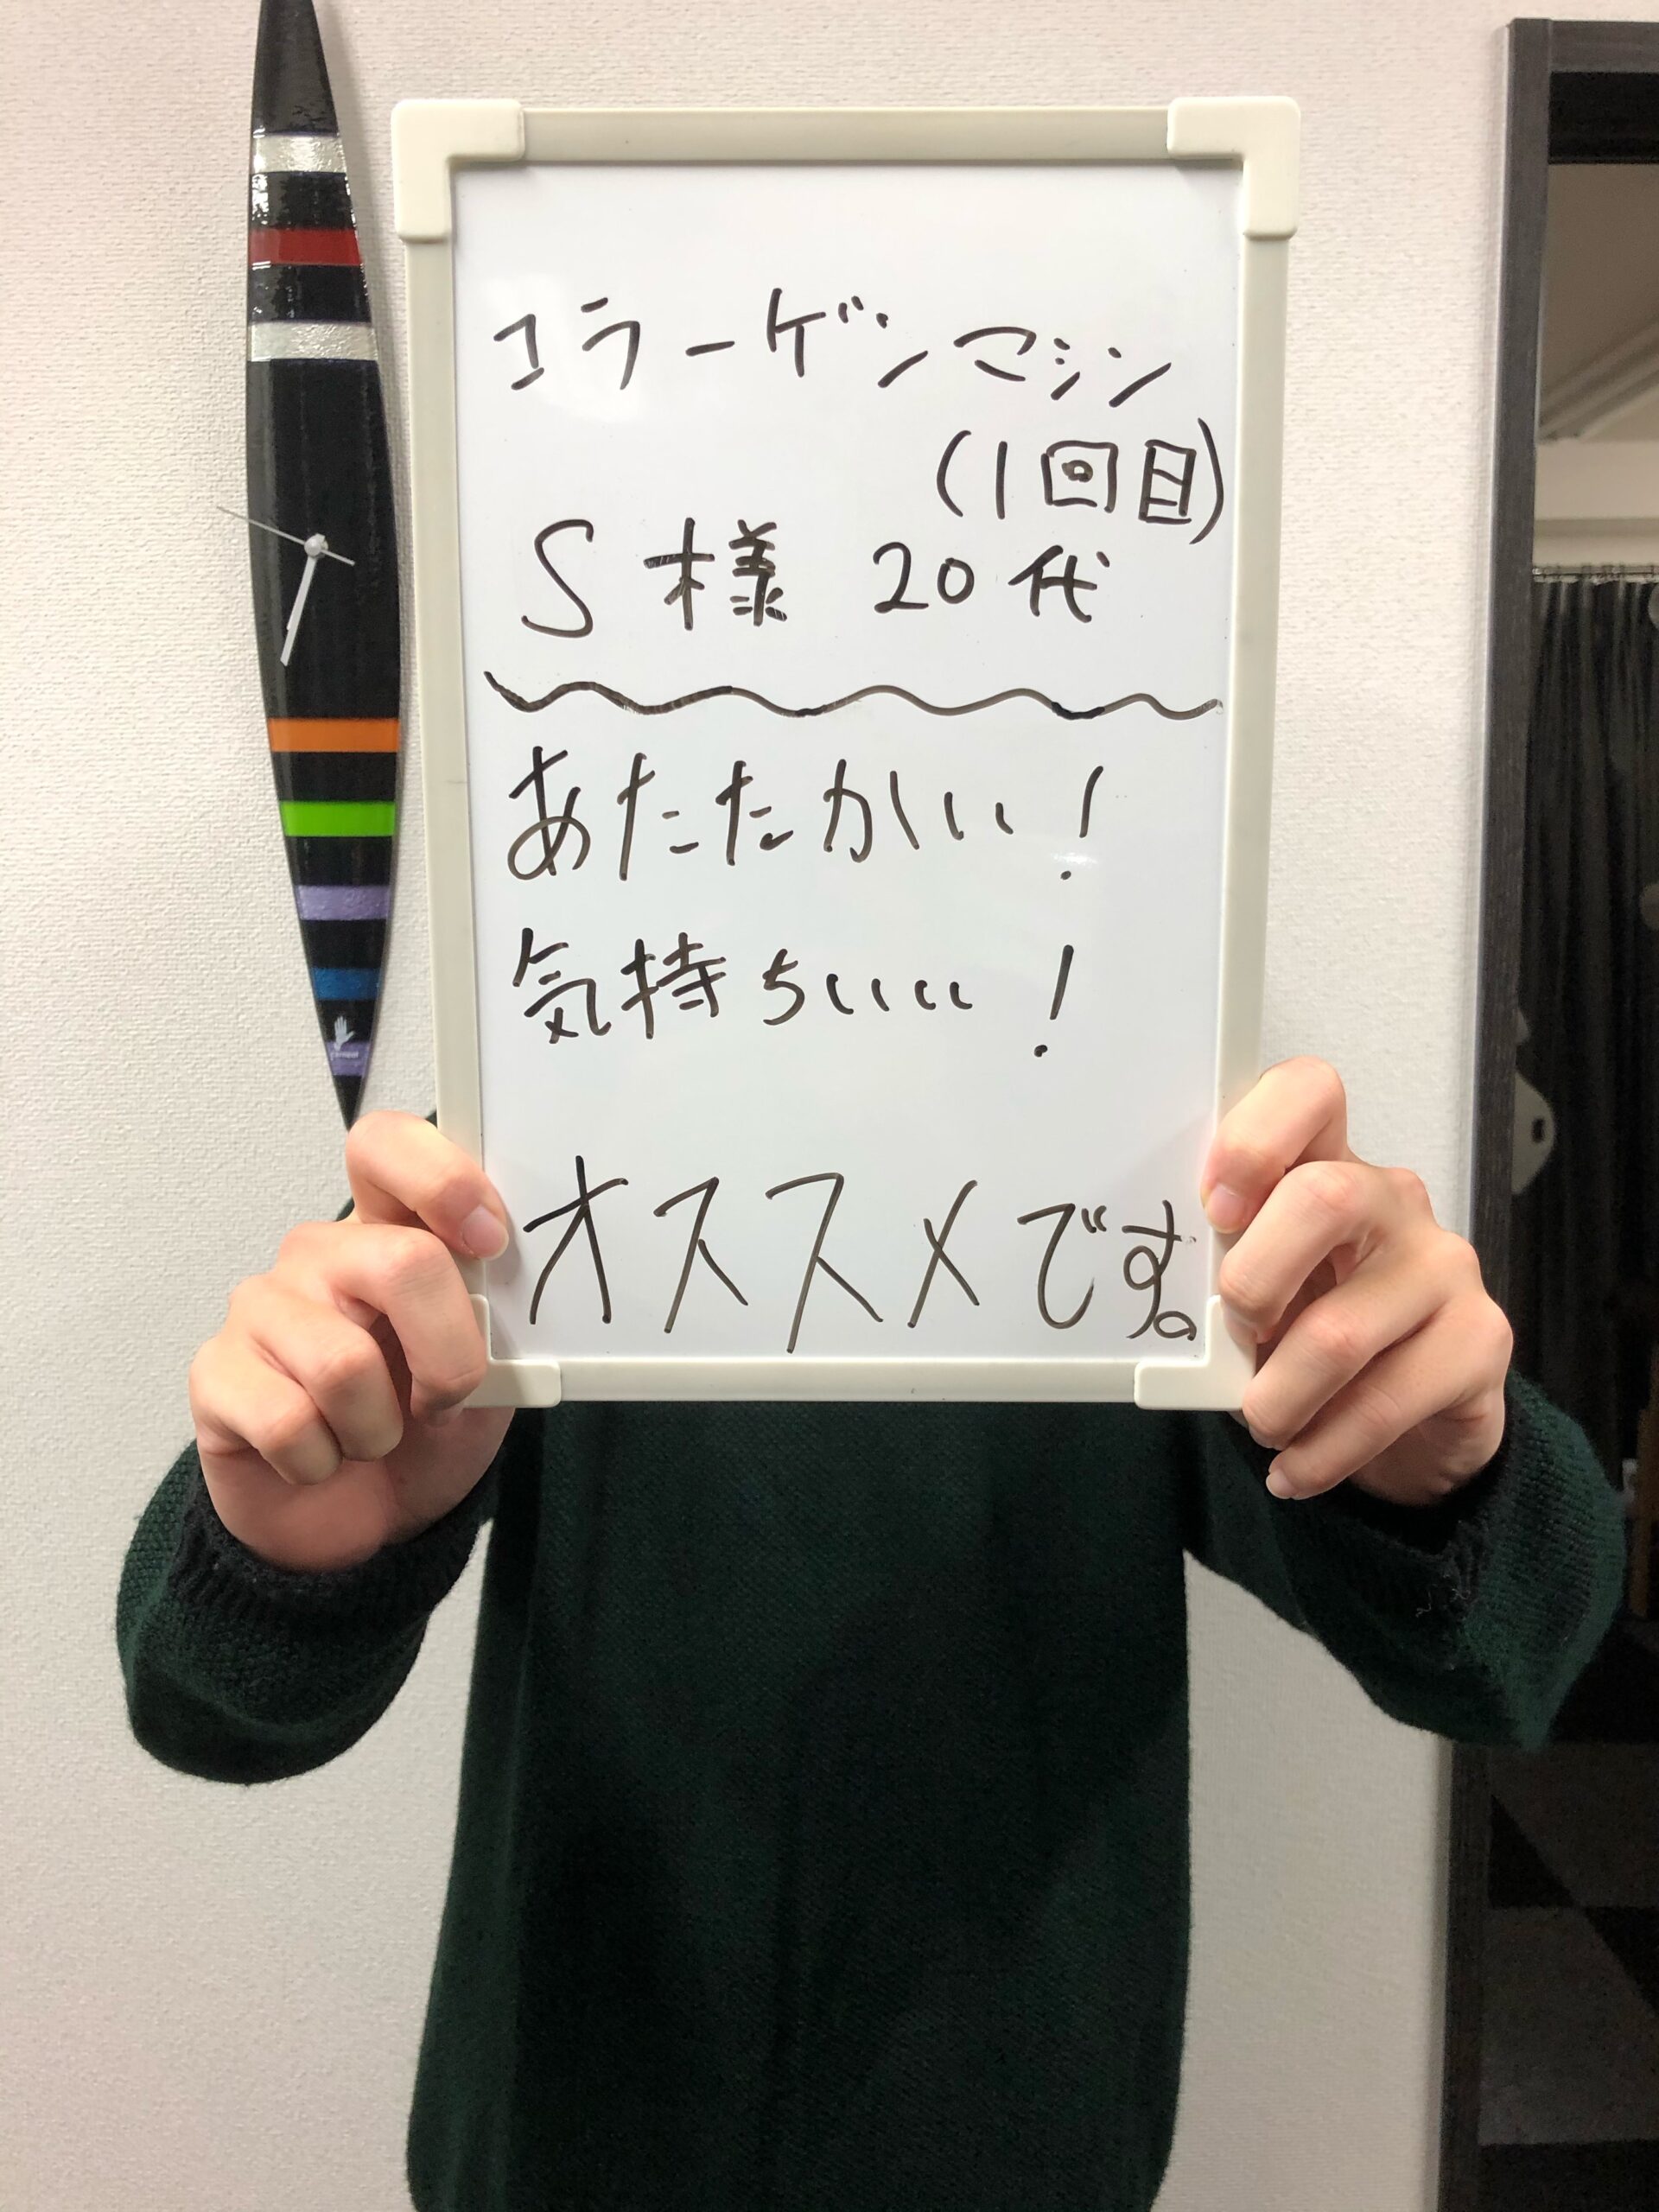 コラーゲンマシン
(1回目)
S様 20代
あたたかい!
気持ちいい!
オススメです。